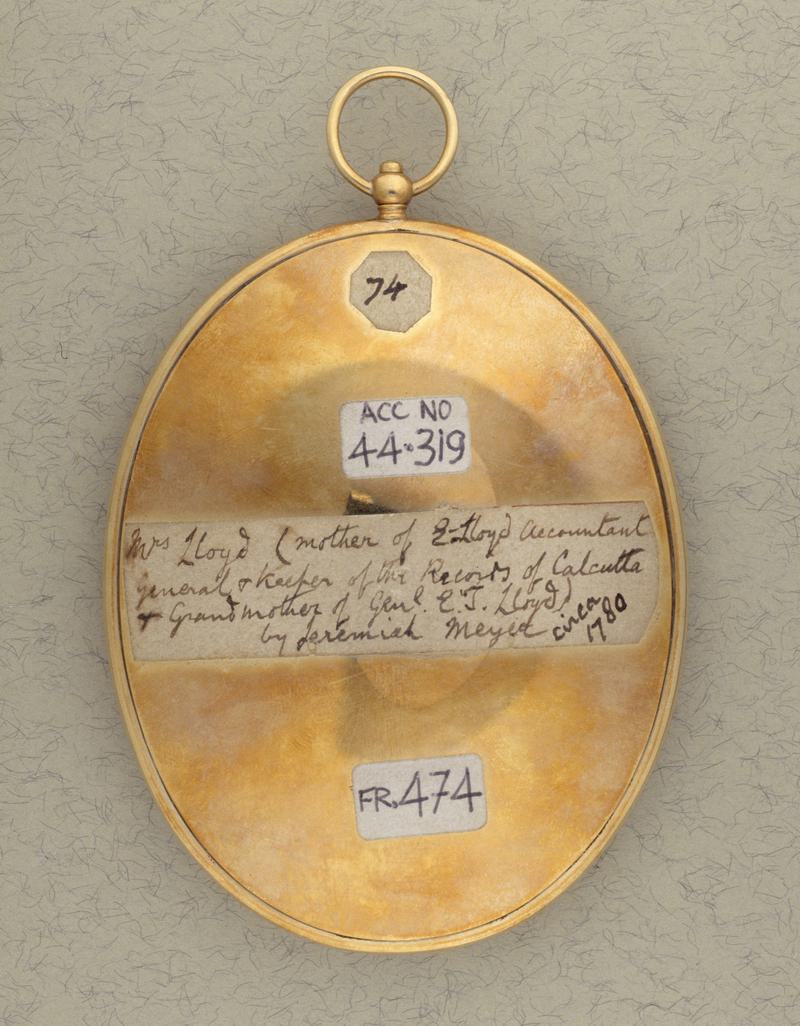 74
ACC NO
44.319
Mrs Lloyd (mother of E. Lloyd Accountant
General, & Keeper of the Records of Calcutta
& Grandmother of Genl. E. T. Lloyd)
by Jeremiah Meyer circa
1780
FR.474